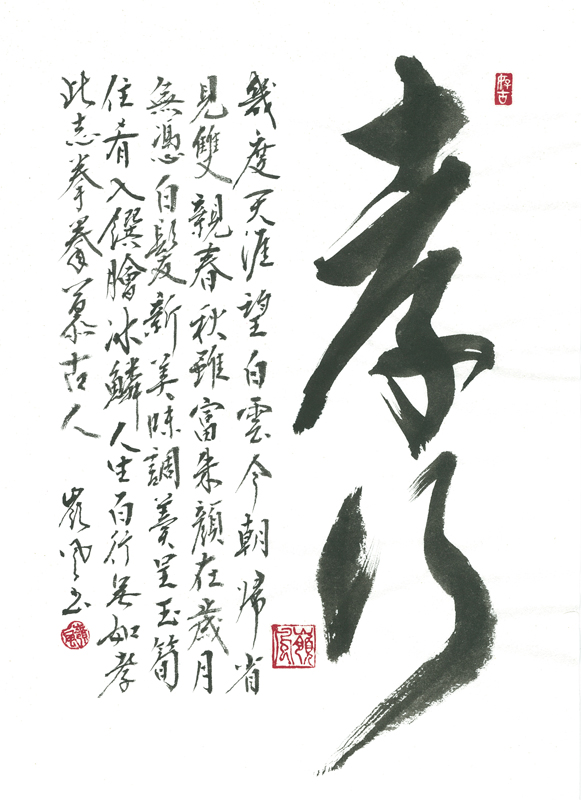 好古
孝行
幾度天涯望白雲今朝歸省
見雙親春秋雖富朱顏在歲月
無憑白髮新美味調羹呈玉筍
佳肴入饌膾冰鱗人生百行無如孝
此志拳拳慕古人
嶺風书
嶺風